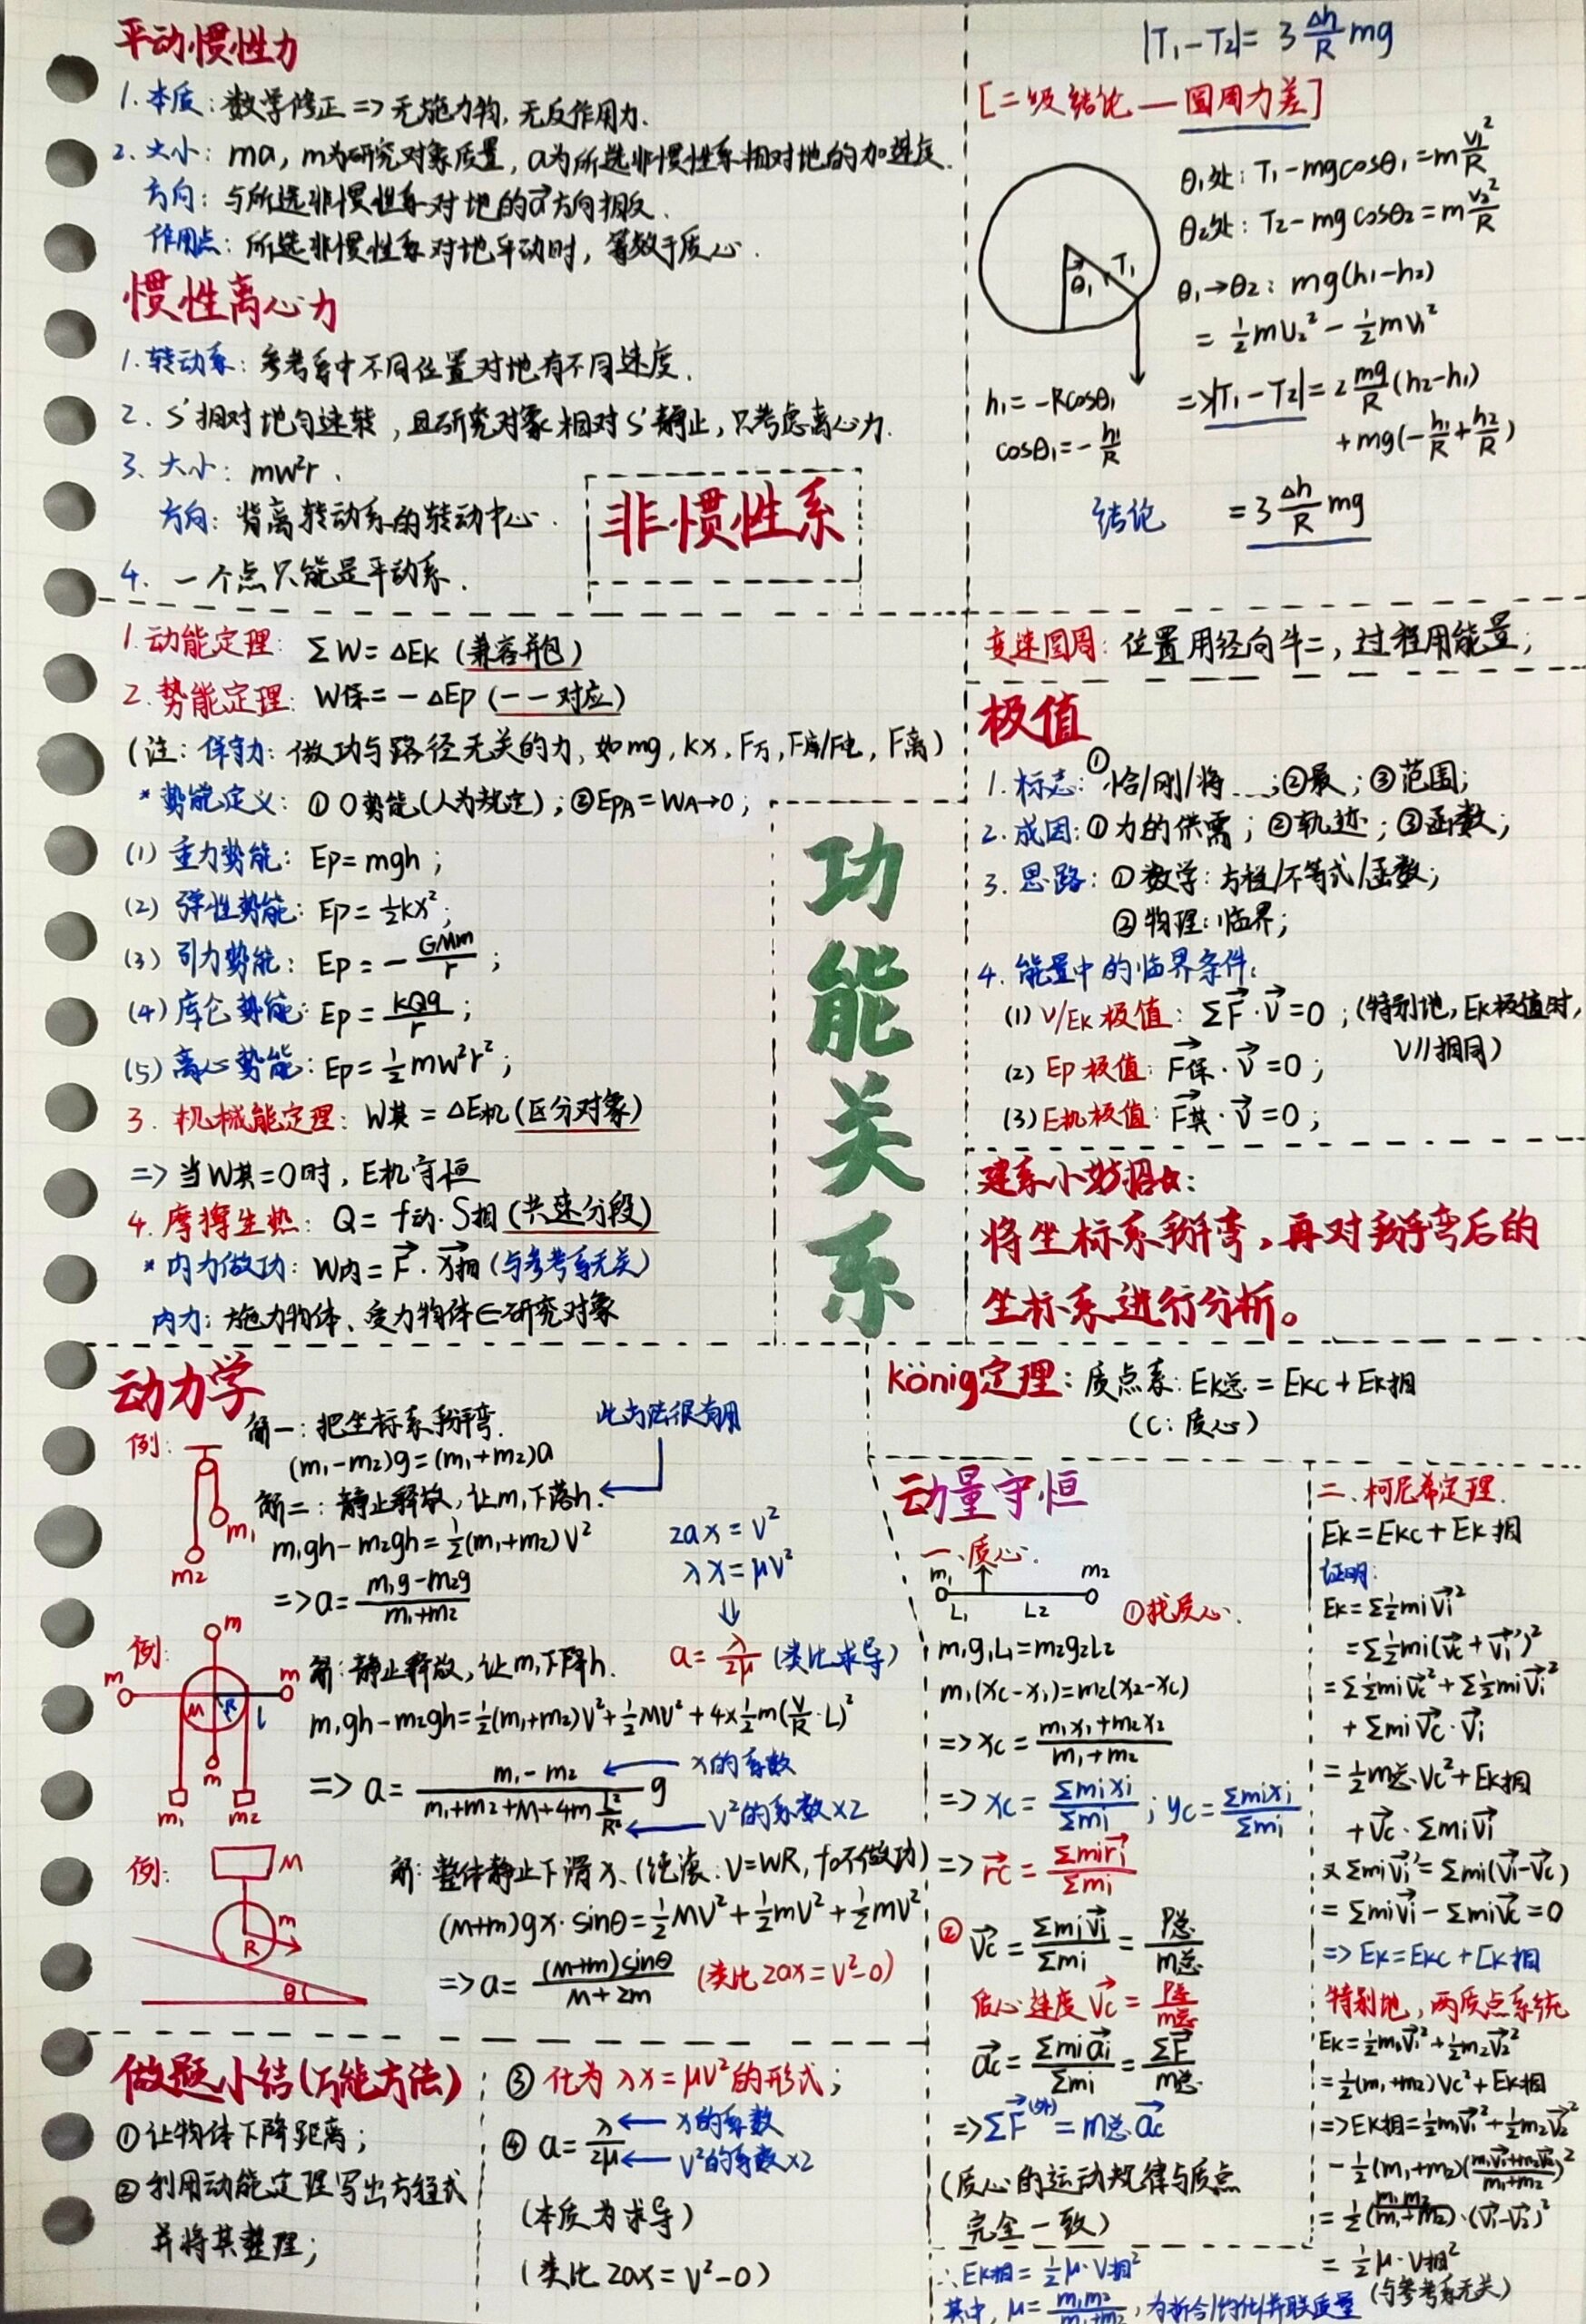 平动惯性力
1.本质：数学修正=>无施力物，无反作用力.
2.大小：ma，m为研究对象质量，a为所选非惯性系相对地的加速度.
方向：与所选非惯性系对地的a⃗方向相反.
作用点：所选非惯性系对地平动时，等效于质心.
惯性离心力
1.转动系：参考系中不同位置对地有不同速度.
2. S'相对地匀速转，且研究对象相对S'静止，只考虑离心力.
3.大小：mw²r.
方向：背离转动系的转动中心.
4. 一个点只能是平动系.
非惯性系
|T₁-T₂|= 3 Δh/R mg
[二级结论—圆周力差]
θ₁处：T₁-mgcosθ₁=m v₁²/R
θ₂处：T₂-mgcosθ₂=m v₂²/R
θ₁ T₁
θ₁→θ₂：mg(h₁-h₂)
= ½mv₂²-½mv₁²
h₁=-Rcosθ₁
cosθ₁=-h₁/R
=>|T₁-T₂|=2 mg/R (h₂-h₁)
+mg(-h₁/R+h₂/R)
结论 =3 Δh/R mg
1.动能定理：ΣW=ΔEk（兼容并包）
2.势能定理：W保=-ΔEp（一一对应）
（注：保守力：做功与路径无关的力，如mg，kx，F万，F库/F电，F离）
*势能定义：①0势能(人为规定)；②EpA=WA→0；
(1)重力势能：Ep=mgh；
(2)弹性势能：Ep=½kx²；
(3)引力势能：Ep=-GMm/r；
(4)库仑势能：Ep=kQq/r；
(5)离心势能：Ep=½mw²r²；
3.机械能定理：W其=ΔE机(区分对象)
=>当W其=0时，E机守恒
4.摩擦生热：Q=f动·S相(共速分段)
*内力做功：W内=F⃗·x⃗相(与参考系无关)
内力：施力物体、受力物体∈研究对象
功能关系
变速圆周：位置用径向牛二，过程用能量；
极值
1.标志：①恰/刚/将...；②最；③范围；
2.成因：①力的供需；②轨迹；③函数；
3.思路：①数学：方程/不等式/函数；
②物理：临界；
4.能量中的临界条件：
(1)V/Ek极值：ΣF⃗·V⃗=0；(特别地，Ek极值时，
V//相同)
(2)Ep极值：F⃗保·V⃗=0；
(3)E机极值：F⃗其·V⃗=0；
建系小妙招：
将坐标系掰弯，再对掰弯后的
坐标系进行分析。
动力学
例：
m₁
m₂
解一：把坐标系掰弯.
(m₁-m₂)g=(m₁+m₂)a
此方法很有用
解二：静止释放，让m₁下落h.
m₁gh-m₂gh=½(m₁+m₂)V²
=>a=(m₁g-m₂g)/(m₁+m₂)
2ax=V²
λx=μV²
⇓
a=λ/2μ (类比求导)
例：
m
m m
M R l
m
m₁ m₂
解：静止释放，让m₁下降h.
m₁gh-m₂gh=½(m₁+m₂)V²+½MV²+4×½m(V/R·L)²
=> a=(m₁-m₂)/(m₁+m₂+M+4m L²/R²) g
x的系数
V²的系数×2
例：
M
m
R
θ
解：整体静止下滑x.(纯滚：V=WR，f0不做功)
(M+m)gx·sinθ=½MV²+½mV²+½mV²
=>a=(M+m)sinθ/(M+2m) (类比2ax=V²-0)
做题小结(万能方法)
①让物体下降距离；
②利用动能定理写出方程式
并将其整理；
③化为λx=μV²的形式；
④a=λ/2μ
x的系数
V²的系数×2
(本质为求导)
(类比2ax=V²-0)
könig定理：质点系：Ek总=Ekc+Ek相
(C：质心)
动量守恒
一.质心.
m₁ m₂
L₁ L₂
①找质心.
m₁g₁L₁=m₂g₂L₂
m₁(xc-x₁)=m₂(x₂-xc)
=>xc=(m₁x₁+m₂x₂)/(m₁+m₂)
=>xc=Σmixi/Σmi；yc=Σmixi/Σmi
=>r⃗c=Σmir⃗i/Σmi
②V⃗c=ΣmiV⃗i/Σmi=P总/m总
质心速度V⃗c=P总/m总
a⃗c=Σmia⃗i/Σmi=ΣF⃗/m总
=>ΣF⃗(外)=m总a⃗c
(质心的运动规律与质点
完全一致)
二.柯尼希定理.
Ek=Ekc+Ek相
证明：
Ek=Σ½miV⃗i²
=Σ½mi(V⃗c+V⃗i')²
=Σ½miV⃗c²+Σ½miV⃗i²
+ΣmiV⃗c·V⃗i
=½m总·Vc²+Ek相
+V⃗c·ΣmiV⃗i
又ΣmiV⃗i'=Σmi(V⃗i-V⃗c)
=ΣmiV⃗i-ΣmiV⃗c=0
=>Ek=Ekc+Ek相
特别地，两质点系统
Ek=½m₁V⃗₁²+½m₂V⃗₂²
=½(m₁+m₂)Vc²+Ek相
=>Ek相=½m₁V⃗₁²+½m₂V⃗₂²
-½(m₁+m₂)((m₁V⃗₁+m₂V⃗₂)/(m₁+m₂))²
=½(m₁m₂/(m₁+m₂))·(V⃗₁-V⃗₂)²
=½μ·V相²
(与参考系无关)
∴Ek相=½μ·V相²
其中，μ=m₁m₂/(m₁+m₂)，为折合/约化/并联质量